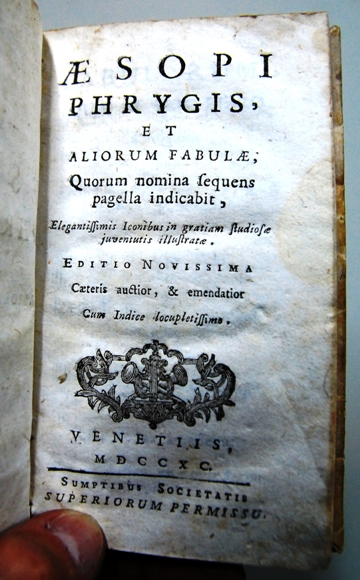 ÆSOPI
PHRYGIS,
ET
ALIORUM FABULÆ,
Quorum nomina ſequens
pagella indicabit,
Elegantiſſimis Iconibus in gratiam ſtudioſæ
juventutis illuſtratæ.
EDITIO NOVISSIMA
Cæteris auctior, & emendatior
Cum Indice locupletiſſimo.
VENETIIS,
MDCCXC.
SUMPTIBUS SOCIETATIS
SUPERIORUM PERMISSU.